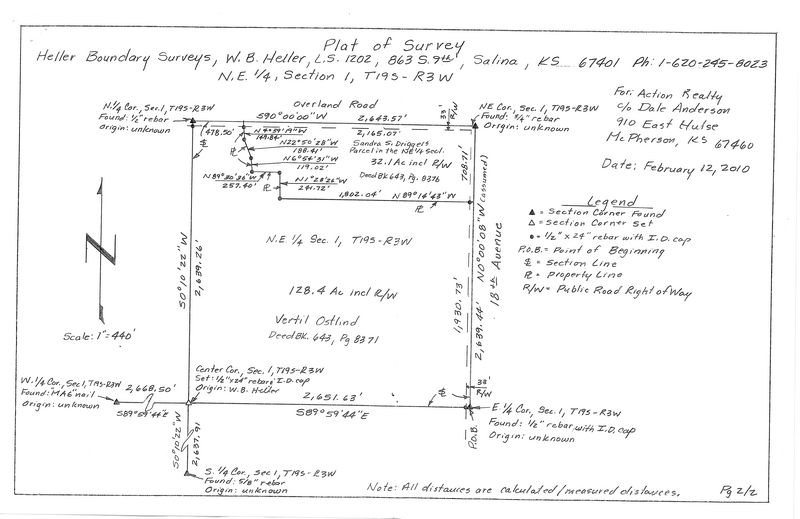 Plat of Survey
Heller Boundary Surveys, W.B. Heller, L.S. 1202, 863 S. 9th, Salina, KS 67401 Ph: 1-620-245-8023
N.E. 1/4, Section 1, T19S-R3W
For: Action Realty
c/o Dale Anderson
910 East Hulse
McPherson, KS 67460
Date: February 12, 2010
N. 1/4 Cor., Sec. 1, T19S-R3W
Found: 1/2" rebar
Origin: unknown
Overland Road
S90°00'00"W 2,643.57'
33'
R/W
NE Cor., Sec. 1, T19S-R3W
Found: 3/4" rebar
Origin: unknown
478.50'
2,165.07'
149.84'
N22°50'28"W
188.41'
N6°54'31"W
119.02'
Sandra S. Driggers
Parcel in the NE 1/4 Sec 1
32.1 Ac incl R/W
Deed Bk 643, Pg. 8376
708.71'
257.40'
N1°28'26"W
241.72'
1,802.04' N89°14'43"W
Legend
▲ = Section Corner Found
△ = Section Corner Set
● = 1/2" x 24" rebar with I.D. cap
P.O.B. = Point of Beginning
℄ = Section Line
PL = Property Line
R/W = Public Road Right of Way
N
Scale: 1"=440'
S0°10'22"W
2,639.26'
N.E. 1/4 Sec. 1, T19S-R3W
128.4 Ac incl R/W
Vertil Ostlind
Deed Bk. 643, Pg 8371
1,930.73'
2,639.44' N0°00'08"W (assumed)
18th Avenue
W. 1/4 Cor., Sec 1, T19S-R3W
Found: "MAG" nail
Origin: unknown
2,668.50'
S89°59'44"E
Center Cor., Sec. 1, T19S-R3W
Set: 1/2"x24" rebar & I.D. cap
Origin: W.B. Heller
2,651.63'
S89°59'44"E
33'
R/W
E. 1/4 Cor., Sec. 1, T19S-R3W
Found: 1/2" rebar with I.D. cap
Origin: unknown
P.O.B.
S0°10'22"W
2,637.91
S. 1/4 Cor., Sec 1, T19S-R3W
Found: 5/8" rebar
Origin: unknown
Note: All distances are calculated/measured distances.
Pg 2/2